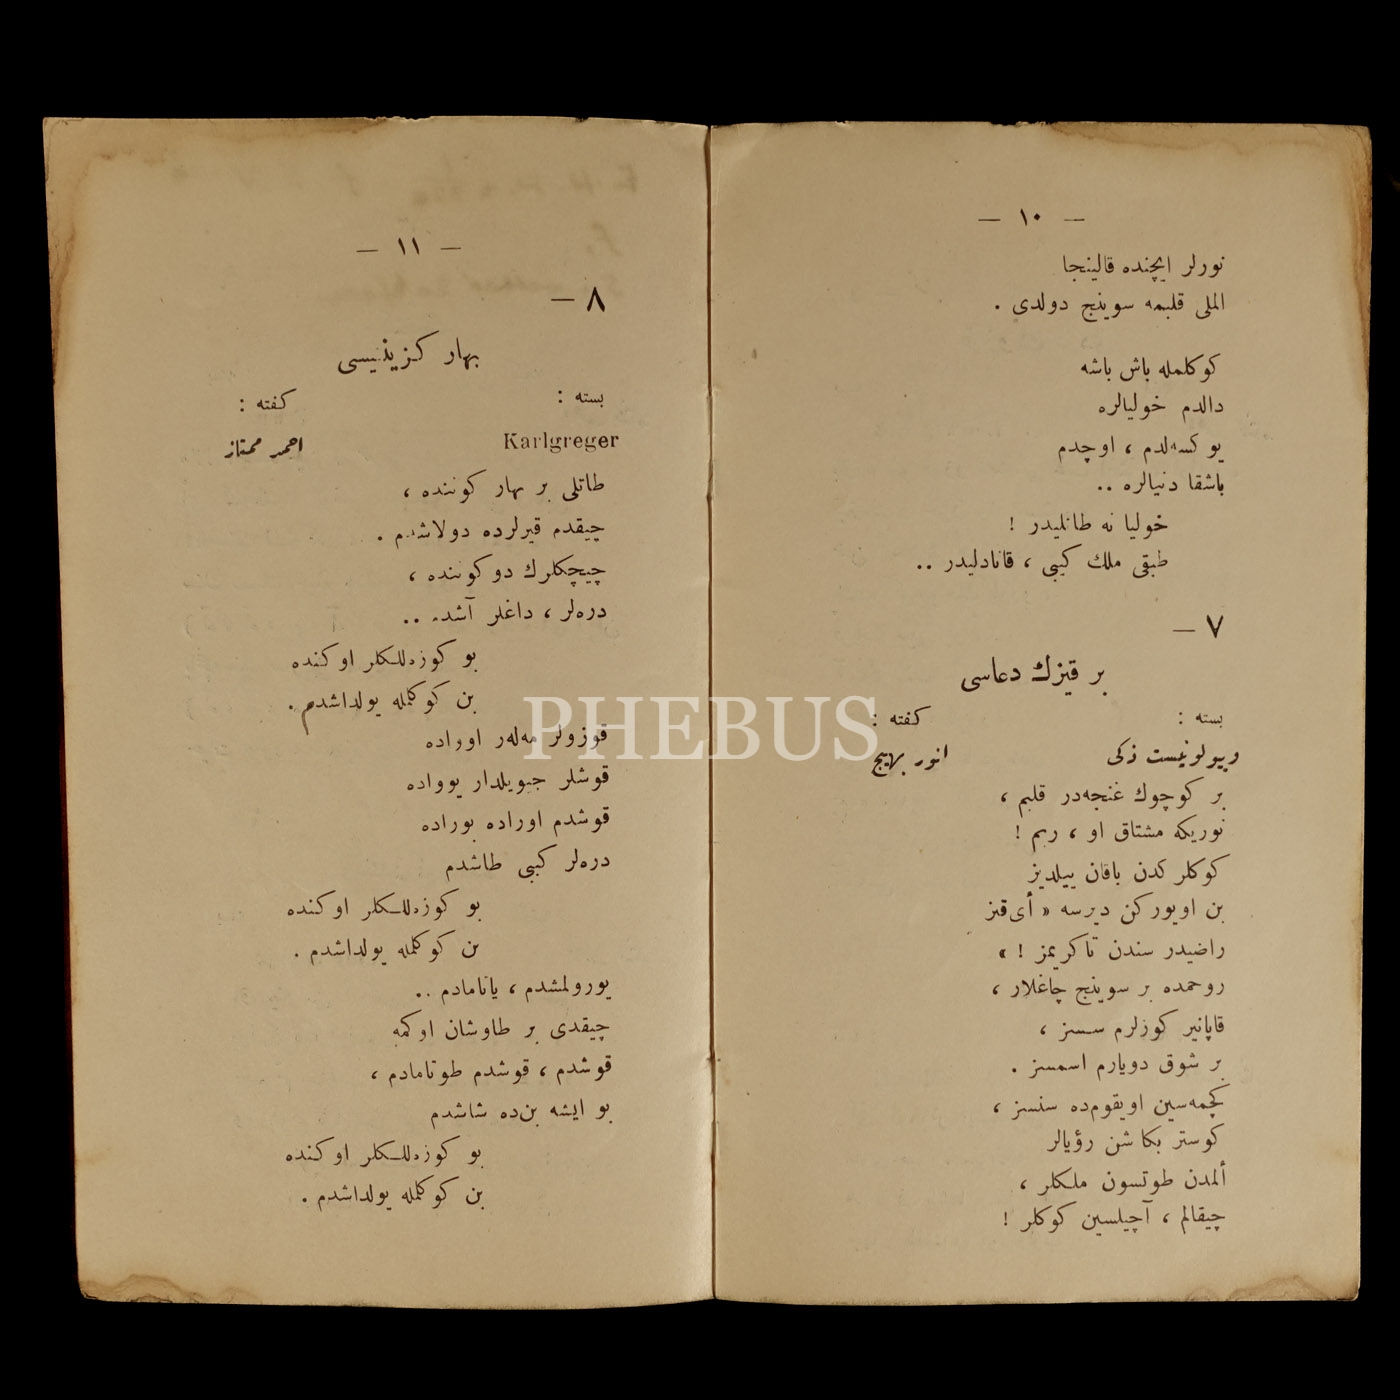 — ١٠ —
نورلر ایچنده قالینجا
الملی قلبمه سوینج دولدی .
كوكلمله باش باشه
دالدم خولیالره
یوكسه‌لدم ، اوچدم
باشقا دنیالره ..
خولیا نه طاتلیدر !
طبقی ملك كیبی ، قانادلیدر ..
٧ —
بر قیزك دعاسی
بسته :
كفته :
ویولونیست ذكی
انور بهیج
بر كوچوك غنجه‌در قلبم ،
نوریكه مشتاق او ، ربم !
كوكلركدن باقان ییلدیز
بن اویوركن دیرسه « أی قیز
راضیدر سندن تاكریمز ! »
روحمده بر سوینج چاغلار ،
قاپانیر كوزلرم سسسز ،
بر شوق دویارم اسمسز .
كچمه‌سین اویقوم‌ده سنسز ،
كوستر بكا شن رؤیالر
ألمدن طوتسون ملكلر ،
چیقالم ، آچیلسین كوكلر !
— ١١ —
٨ —
بهار كزینتیسی
بسته :
كفته :
Karlgreger
احمد ممتاز
طاتلی بر بهار كوننده ،
چیقدم قیرلرده دولاشدم .
چیچكلرك دوكوننده ،
دره‌لر ، داغلر آشدم ..
بو كوزه‌للكلر اوكنده
بن كوكلمله یولداشدم .
قوزولر مه‌له‌ر اوراده
قوشلر جیویلدار یوواده
قوشدم اوراده بوراده
دره‌لر كیبی طاشدم
بو كوزه‌للكلر اوكنده
بن كوكلمله یولداشدم .
یورولمشدم ، یاتامادم ..
چیقدی بر طاوشان اوكمه
قوشدم ، قوشدم طوتامادم ،
بو ایشه بن‌ده شاشدم
بو كوزه‌للكلر اوكنده
بن كوكلمله یولداشدم .
PHEBUS